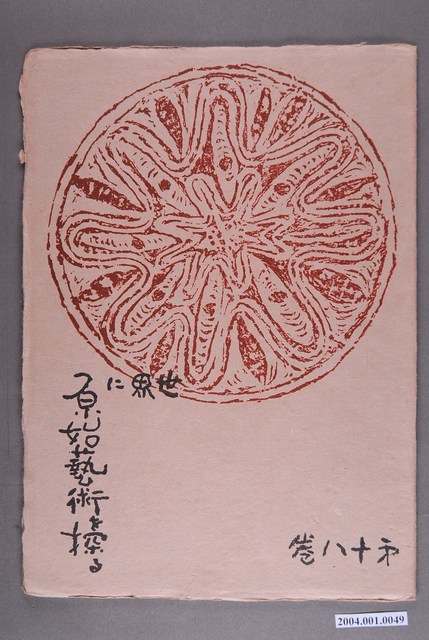 世界に
原始藝術を探る
第十八巻
2004.001.0049